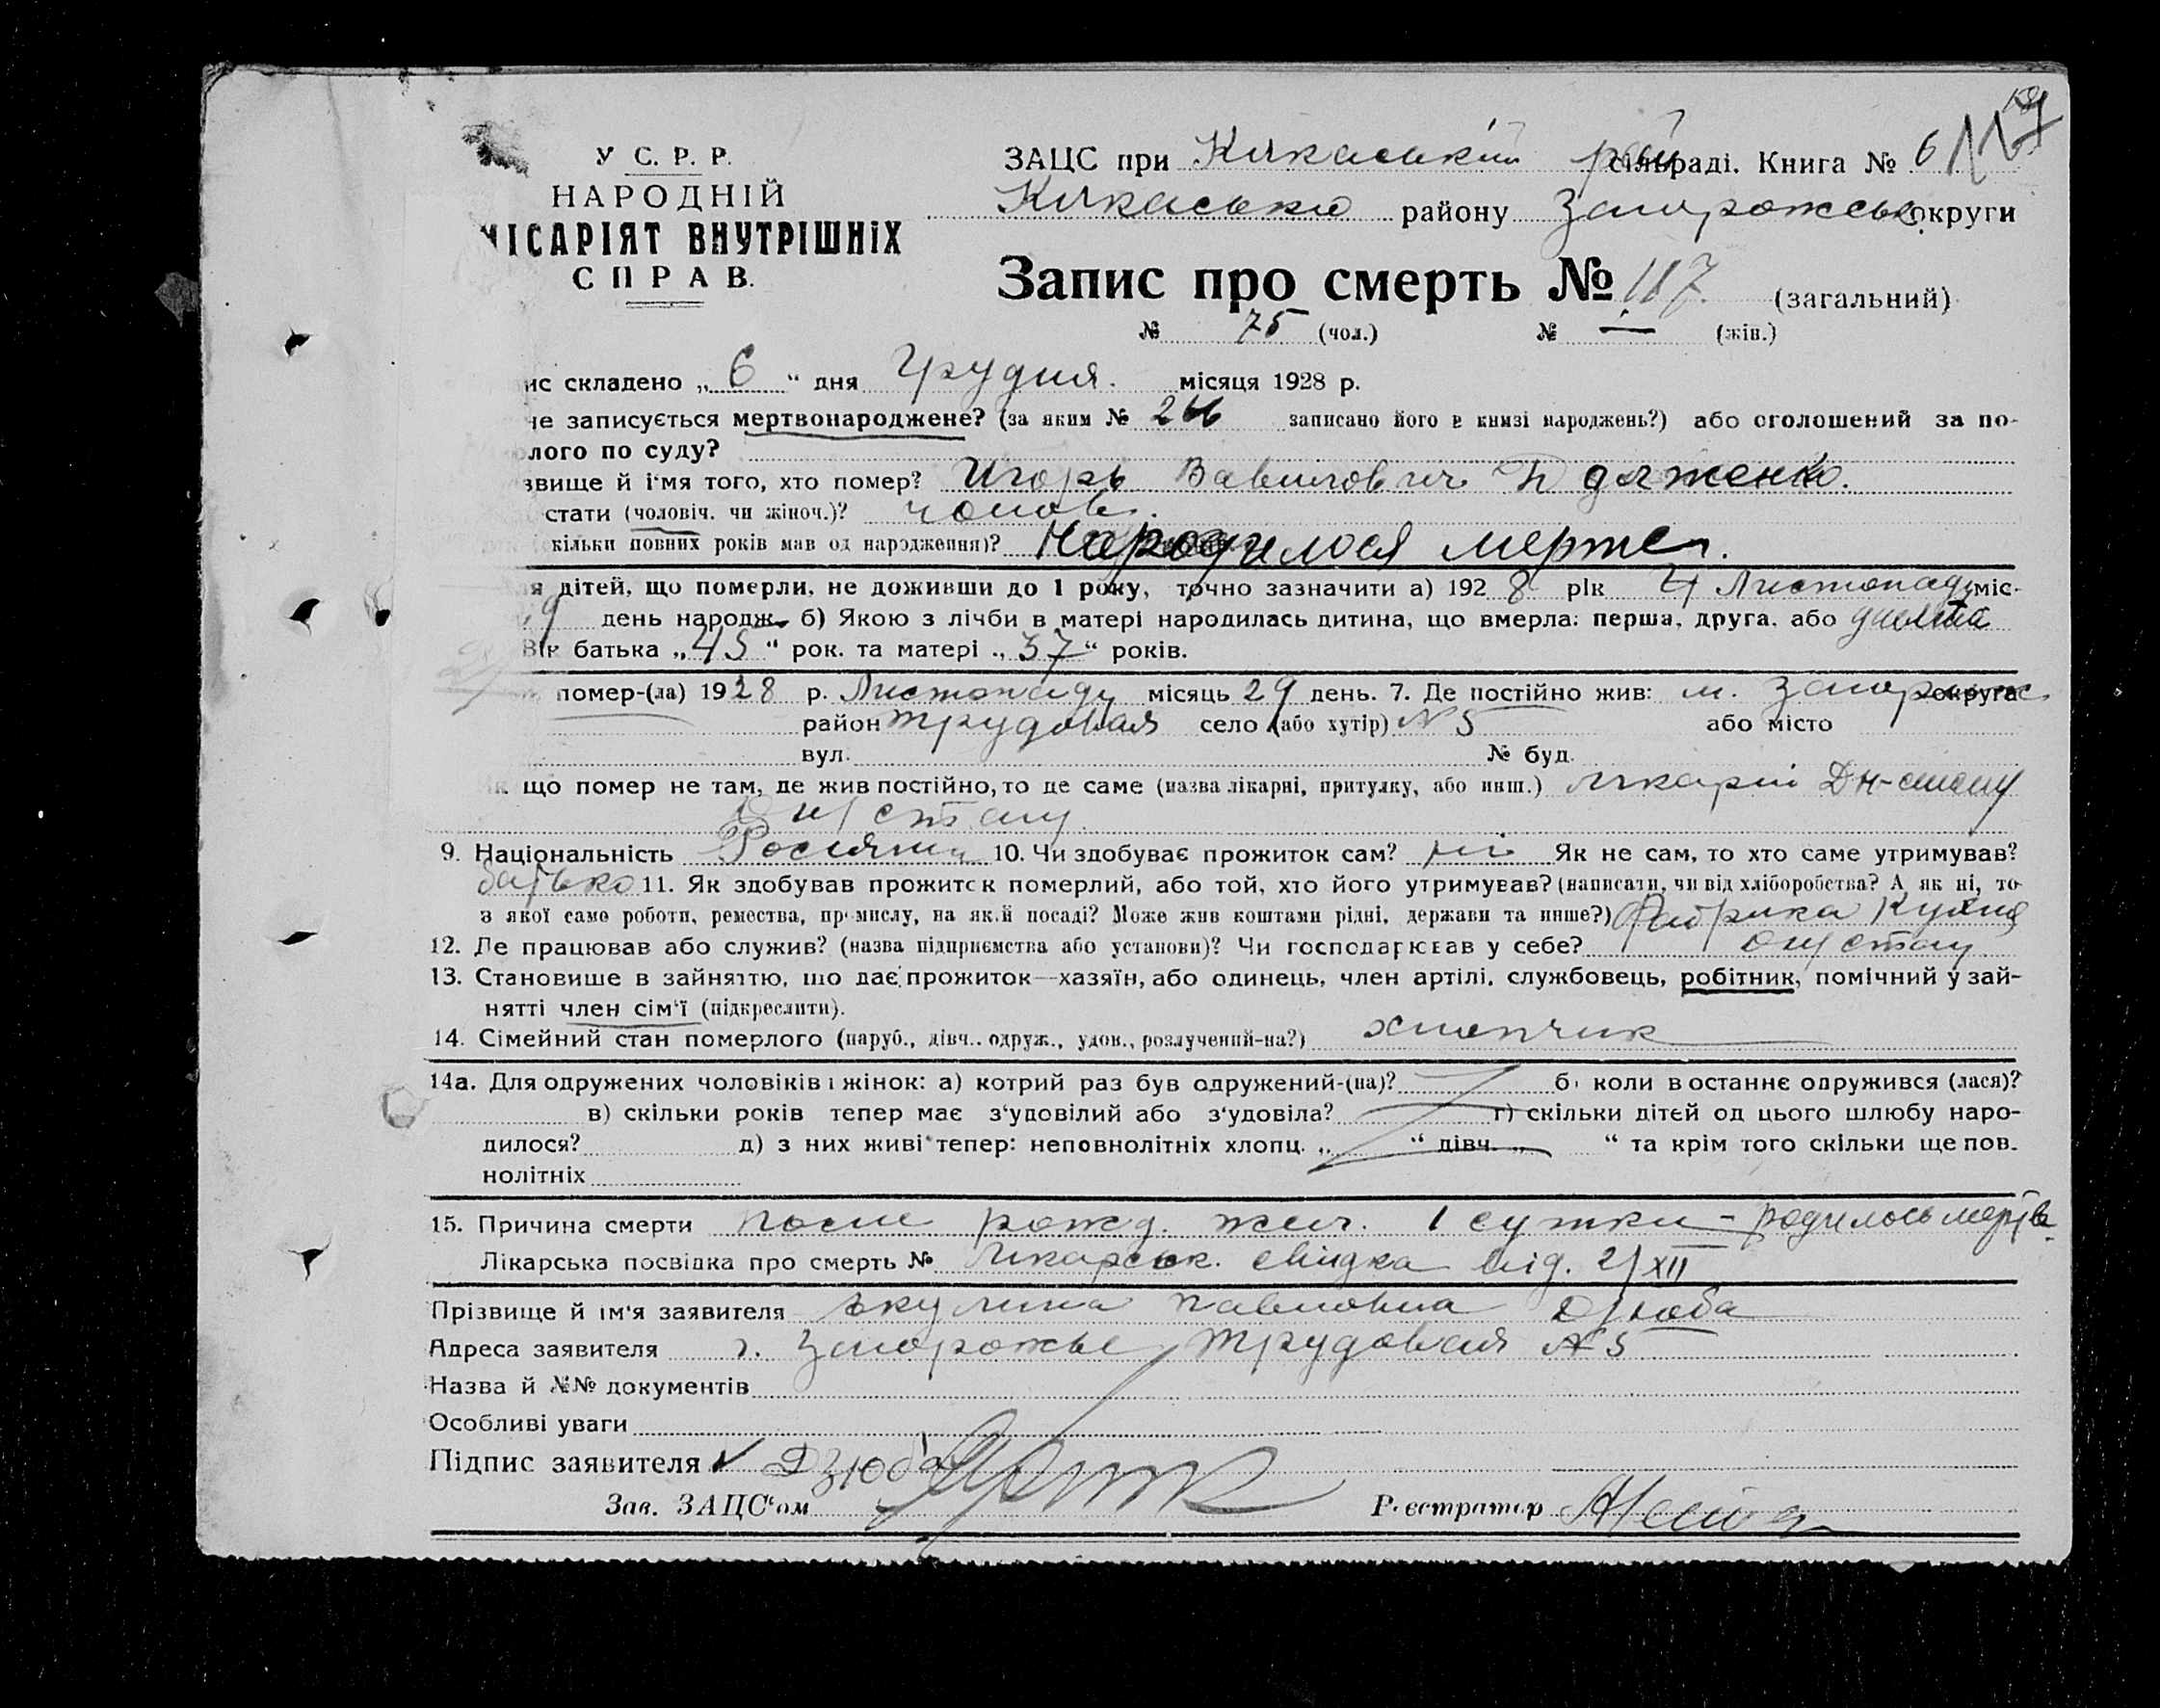 У С. Р. Р.
НАРОДНІЙ
МІСАРІЯТ ВНУТРІШНІХ
СПРАВ.
ЗАЦС при Кичкаський рай сільраді. Книга № 6 117
Кичкасько району Запорожськ округи
Запис про смерть № 117. (загальний)
№ 75 (чол.) № — (жін.)
ис складено „ 6 “ дня Грудня. місяця 1928 р.
не записується мертвонароджене? (за яким № записано його в книзі народжень?) або оголошений за по-
лого по суду?
звище й ім'я того, хто помер? Игорь Вавилович
стати (чоловіч. чи жіноч.)? чолов.
кільки повних років мав од народження)? Народилося мертве.
я дітей, що померли, не доживши до 1 року, точно зазначити а) 192 8 рік Листопаду міс.
9 день народж. б) Якою з лічби в матері народилась дитина, що вмерла: перша, друга, або
Вік батька „ 45 “ рок. та матері „ 37 “ років.
помер-(ла) 1928 р. Листопаду місяць 29 день. 7. Де постійно жив: м. Запорож округа
район Трудовая село (або хутір) № 5 або місто
вул. № буд.
що помер не там, де жив постійно, то де саме (назва лікарні, притулку, або инш.) лікарні Дн-стану
9. Національність Росіянин 10. Чи здобуває прожиток сам? ні Як не сам, то хто саме утримував?
батько 11. Як здобував прожиток померлий, або той, хто його утримував? (написати, чи від хліборобства? А як ні, то
з якої саме роботи, ремества, промислу, на якій посаді? Може жив коштами рідні, держави та инше?) Фабрика Кухня
12. Де працював або служив? (назва підприємства або установи)? Чи господарював у себе?
13. Становище в зайняттю, що дає прожиток—хазяїн, або одинець, член артілі, службовець, робітник, помічний у зай-
нятті член сім'ї (підкреслити).
14. Сімейний стан померлого (паруб., дівч., одруж., удов., розлучений-на?) хлопчик
14а. Для одружених чоловіків і жінок: а) котрий раз був одружений-(на)? б) коли в останнє одружився (лася)?
в) скільки років тепер має з'удовілий або з'удовіла? г) скільки дітей од цього шлюбу наро-
дилося? д) з них живі тепер: неповнолітніх хлопц. „ “ дівч. „ “ та крім того скільки ще пов.
нолітніх
15. Причина смерти после рожд. жил. 1 сутки - родилось мертв.
Лікарська посвідка про смерть № Лікарськ. свідка від. 2/XII
Прізвище й ім'я заявителя Павловна Дзюба
Адреса заявителя г. Запорожье, Трудовая № 5
Назва й №№ документів
Особливі уваги
Підпис заявителя ✓ Дзюба
Зав. ЗАЦС'ом Реєстратор